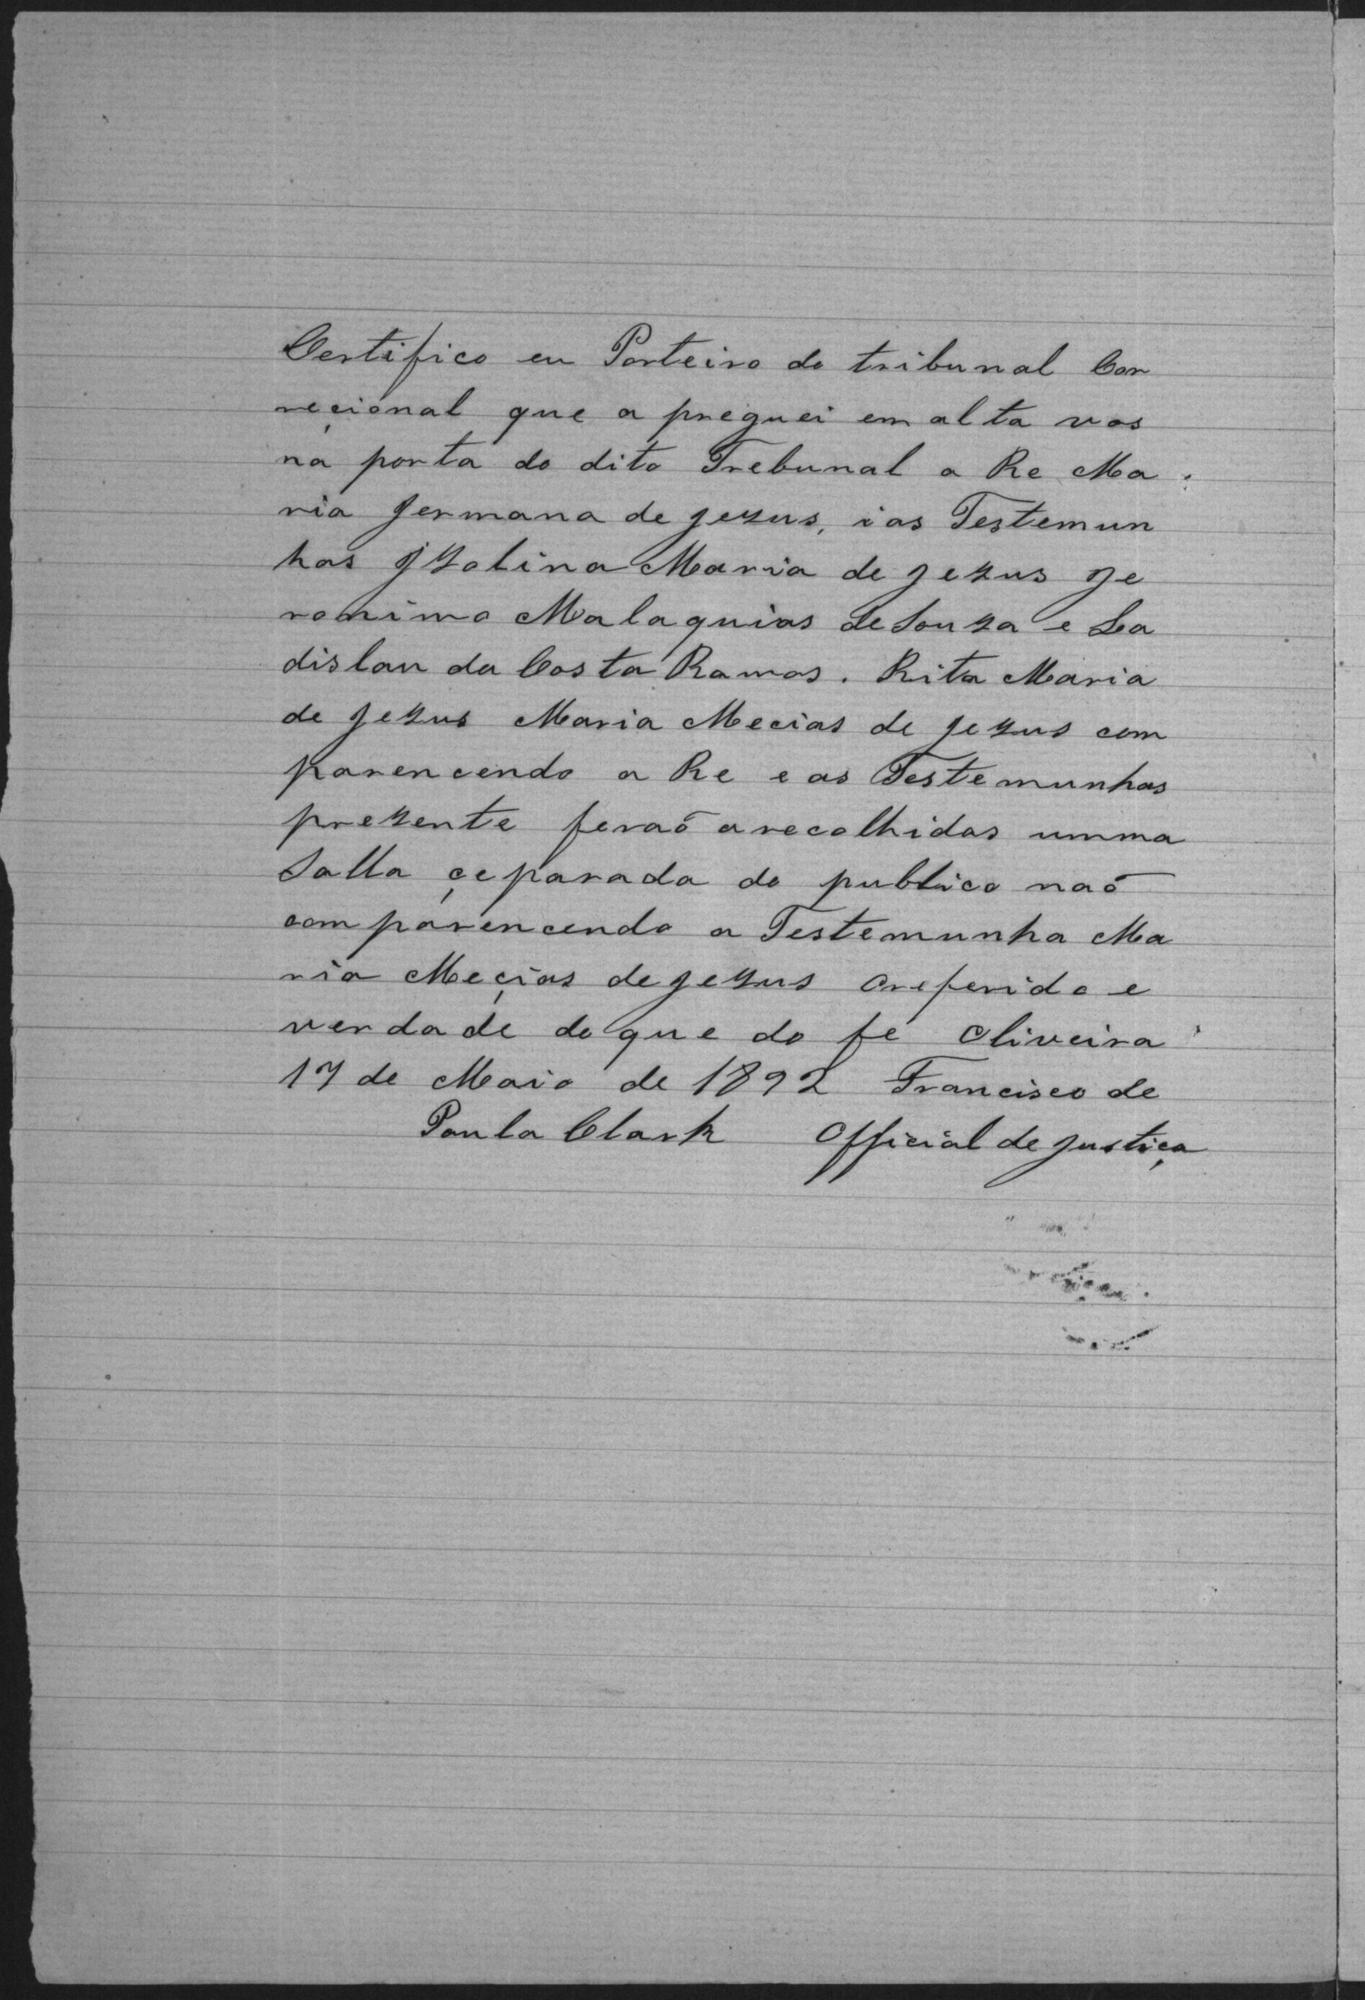 Certifico eu Porteiro do tribunal Cor
reçional que a preguei em alta vos
na porta do dito Trebunal a Re Ma
ria Jermana de Jezus, i as Testemun
has Jzolina Maria de Jezus Je
ronimo Malaquias de Souza e La
dislau da Costa Ramos. Rita Maria
de Jezus Maria Mecias de Jezus com
parencendo a Re e as Testemunhas
prezente foraõ a recolhidas umma
Salla çeparada do publico naõ
comparencendo a Testemunha Ma
ria Meçias de Jezus o referido e
verdade do que do fe Oliveira
17 de Maio de 1892 Francisco de
Paula Clark Official de Justiça